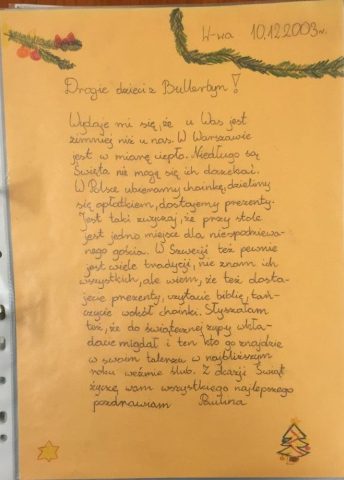 W-wa 10.12.2003r.
Drogie dzieci z Bullerbyn!
Wydaje mi się, że u Was jest
zimniej niż u nas. W Warszawie
jest w miarę ciepło. Niedługo są
Święta nie mogę się ich doczekać.
W Polsce ubieramy choinkę, dzielimy
się opłatkiem, dostajemy prezenty.
Jest taki zwyczaj, że przy stole
jest jedno miejsce dla niespodziewa-
nego gościa. W Szwecji też pewnie
jest wiele tradycji, nie znam ich
wszystkich, ale wiem, że też dosta-
jecie prezenty, czytacie biblię, tań-
czycie wokół choinki. Słyszałam
też, że do świątecznej zupy wkła-
dacie migdał i ten kto go znajdzie
w swoim talerzu w najbliższym
roku weźmie ślub. Z okazji Świąt
życzę wam wszystkiego najlepszego
pozdrawiam Paulina